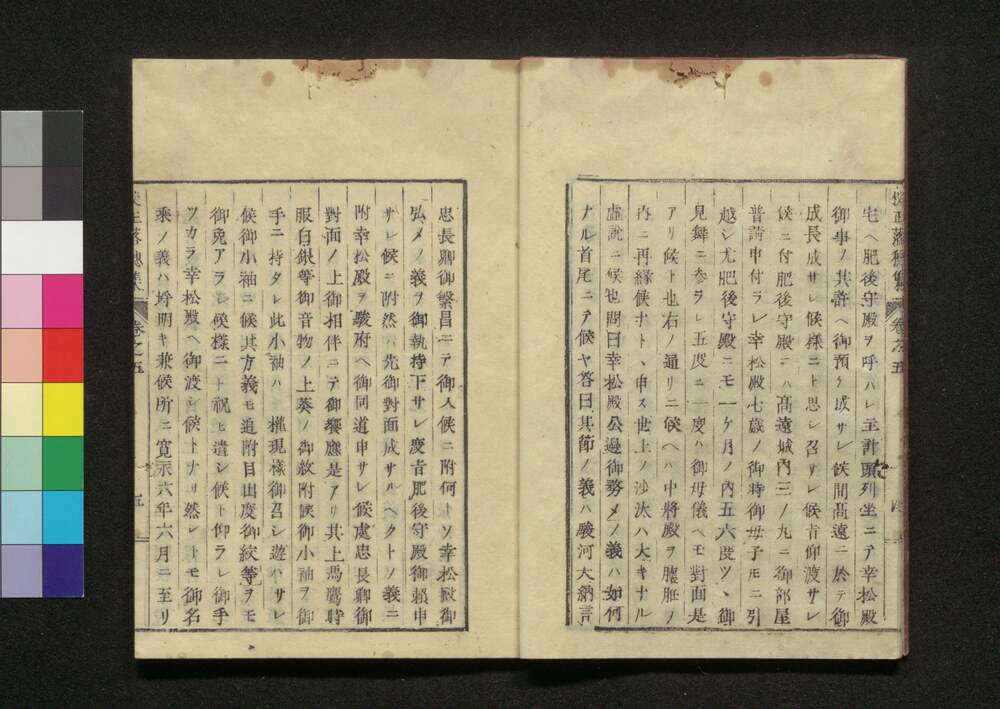 宅ヘ肥後守殿ヲ呼ハレ主計頭列坐ニテ幸松殿
御事ノ其許ヘ御預ケ成サレ候間髙遠ニ於テ御
成長成サレ候様ニト思シ召サレ候旨仰渡サレ
候ニ付肥後守殿ニハ髙遠城内三ノ丸ニ御部屋
普請申付ラレ幸松殿七歳ノ御時御母子庄ニ引
越シ尤肥後守殿ニモ一ケ月ノ内五六度ツヽ御
見舞ニ参ラレ五度ニ一度ハ御母儀ヘモ對面是
アリ候ト也右ノ通リニ候ヘハ中將殿ヲ懷胎ノ
内ニ再縁候ナトヽ申ス世上ノ沙汰ハ大キナル
虚説ニ候也問曰幸松殿公邊御務メノ義ハ如何
ナル首尾ニテ候ヤ答曰其節ノ義ハ駿河大納言
忠長卿御繁昌ニテ御入候ニ附何トソ幸松殿御
弘メノ義ヲ御執持下サレ度旨肥後守殿御頼申
サレ候ニ附然ハ先御對面成サルヘクトノ義ニ
附幸松殿ヲ駿府ヘ御同道申サレ候處忠長卿御
對面ノ上御相伴ニテ御饗應是アリ其上馬鷹時
服白銀等御音物ノ上葵ノ御紋附候御小袖ヲ御
手ニ持タレ此小袖ハ 權現様御召シ遊ハサレ
候御小袖ニ候其方義モ追附目出度御紋等ヲモ
御免アラレ候様ニト祝ヒ遣シ候ト仰ラレ御手
ツカラ幸松殿ヘ御渡シ候トナリ然レトモ御名
乘ノ義ハ埒明キ兼候所ニ寛永六年六月ニ至リ
卷之五
五